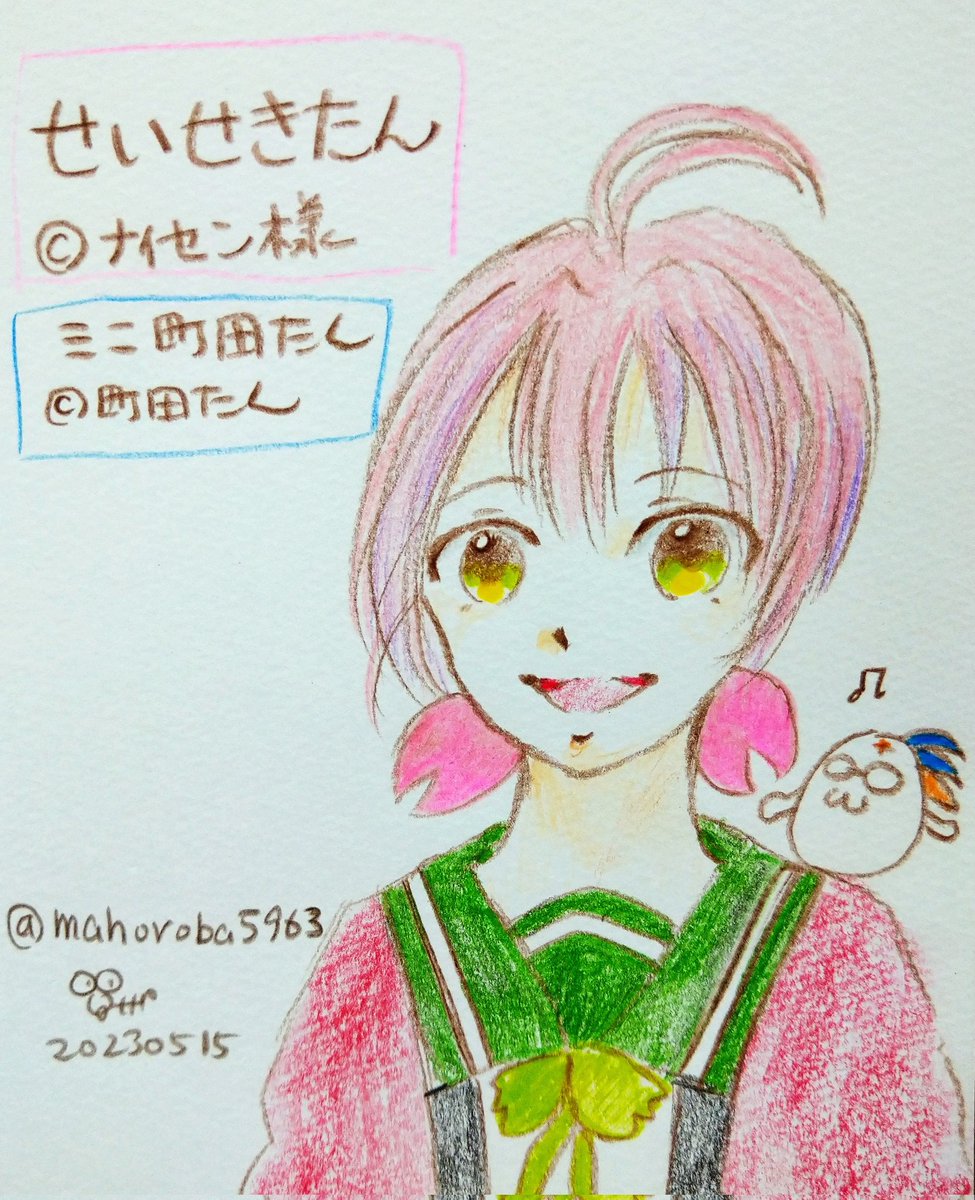 せいせきたん
©ナイセン様
ミニ町田たん
©町田たん
@mahoroba5963
20230515